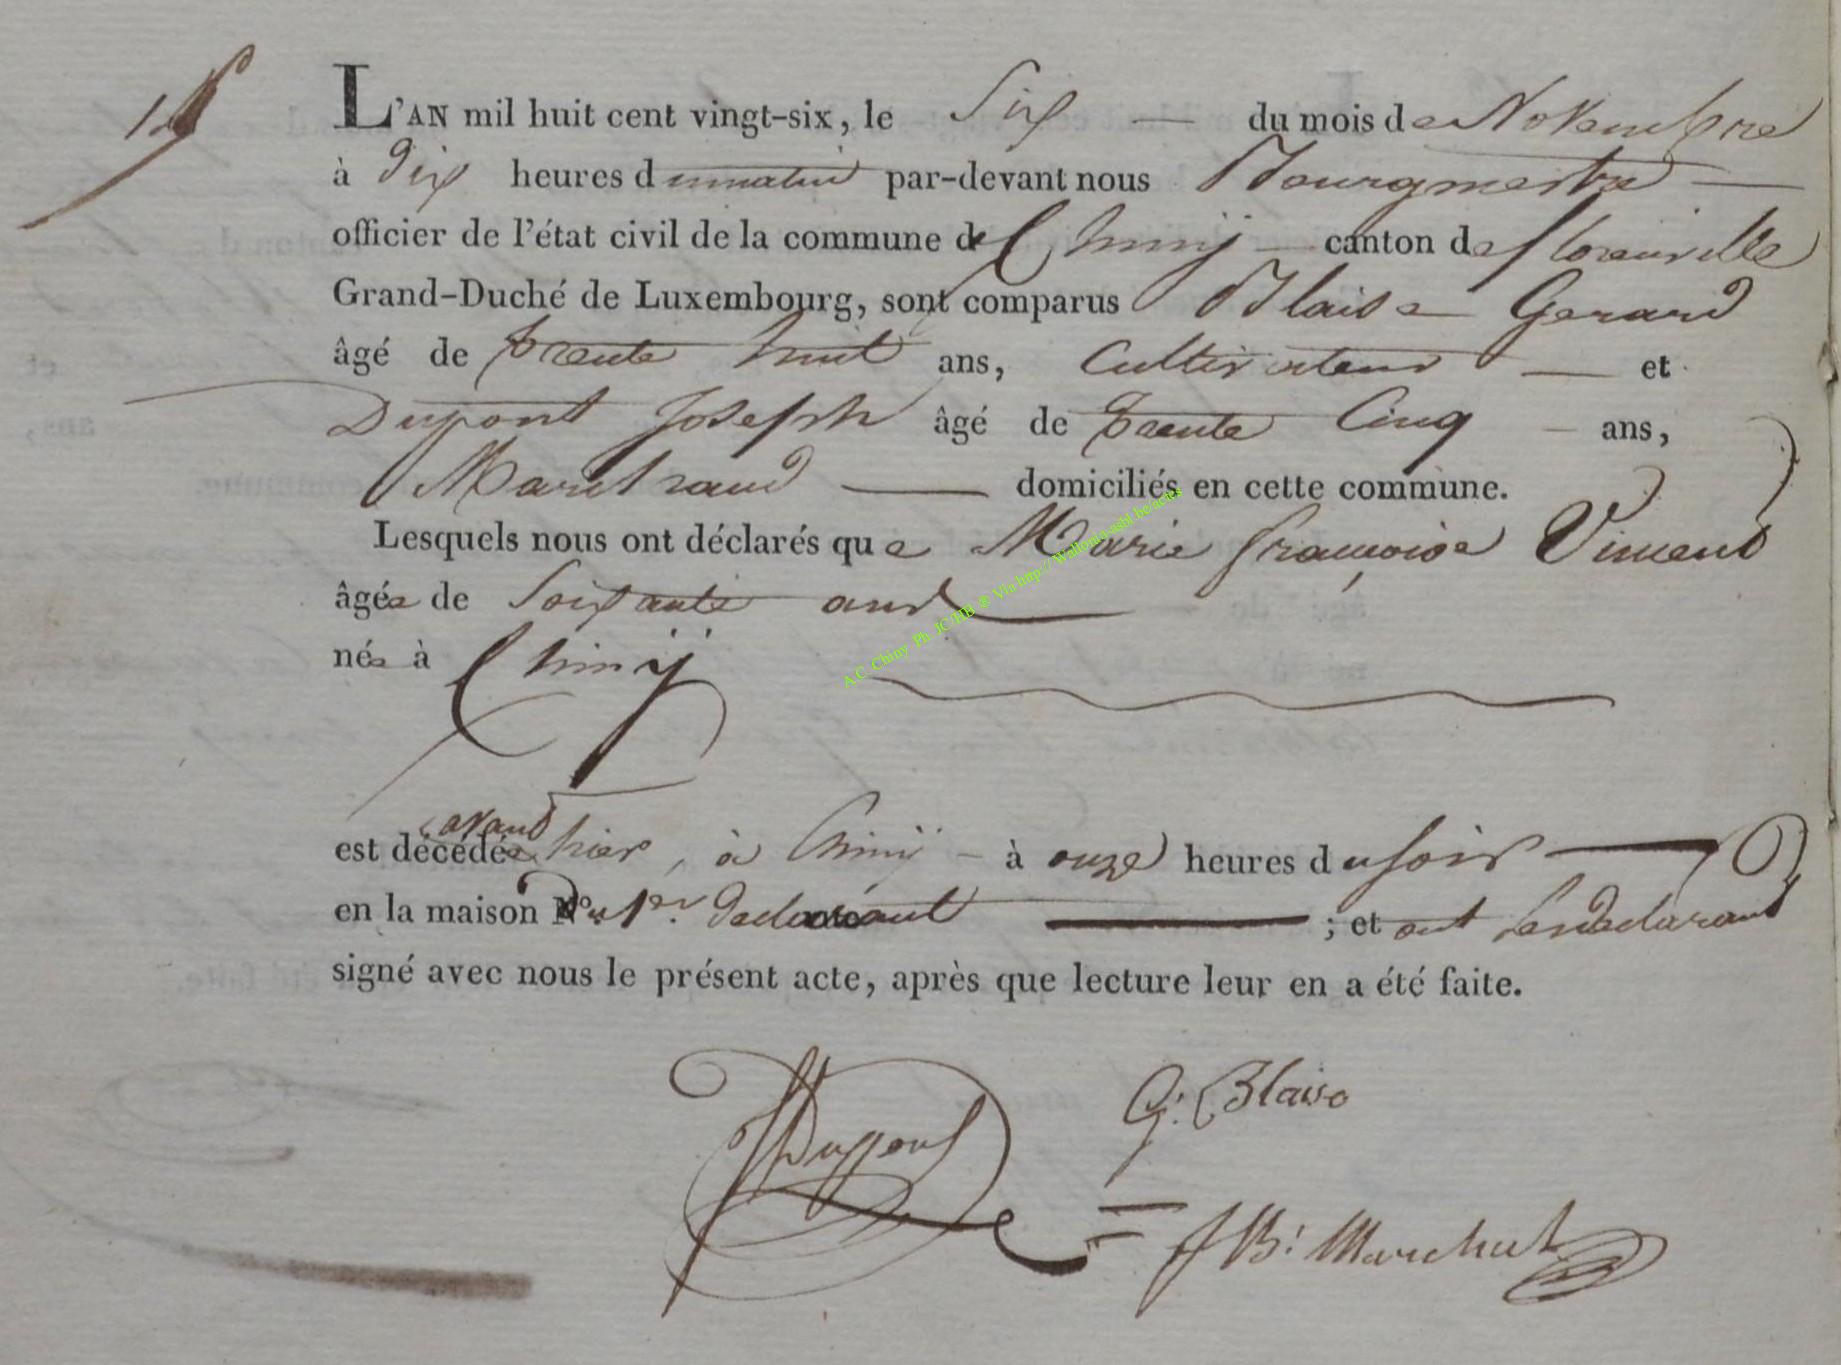 L'AN mil huit cent vingt-six, le Six — du mois de Novembre
à dix heures du matin par-devant nous Bourgmestre —
officier de l'état civil de la commune de Chinÿ — canton de florenville
Grand-Duché de Luxembourg, sont comparus Blaise Gerard
âgé de trente huit ans, Cultivateur — et
Dupont Joseph âgé de trente Cinq — ans,
Marchand — domiciliés en cette commune.
Lesquels nous ont déclarés que Marie françoise
âgée de Soixante ans
née à Chinÿ
avant
est décédée hier, à Chinÿ — à onze heures du soir —
en la maison du 1er. declarant — ; et ont les declarant
signé avec nous le présent acte, après que lecture leur en a été faite.
G: Blaise
JDupont
JB: Marchal
A.C. Chiny Ph JC HB ® Via http://Wallonia-asbl.be/actes